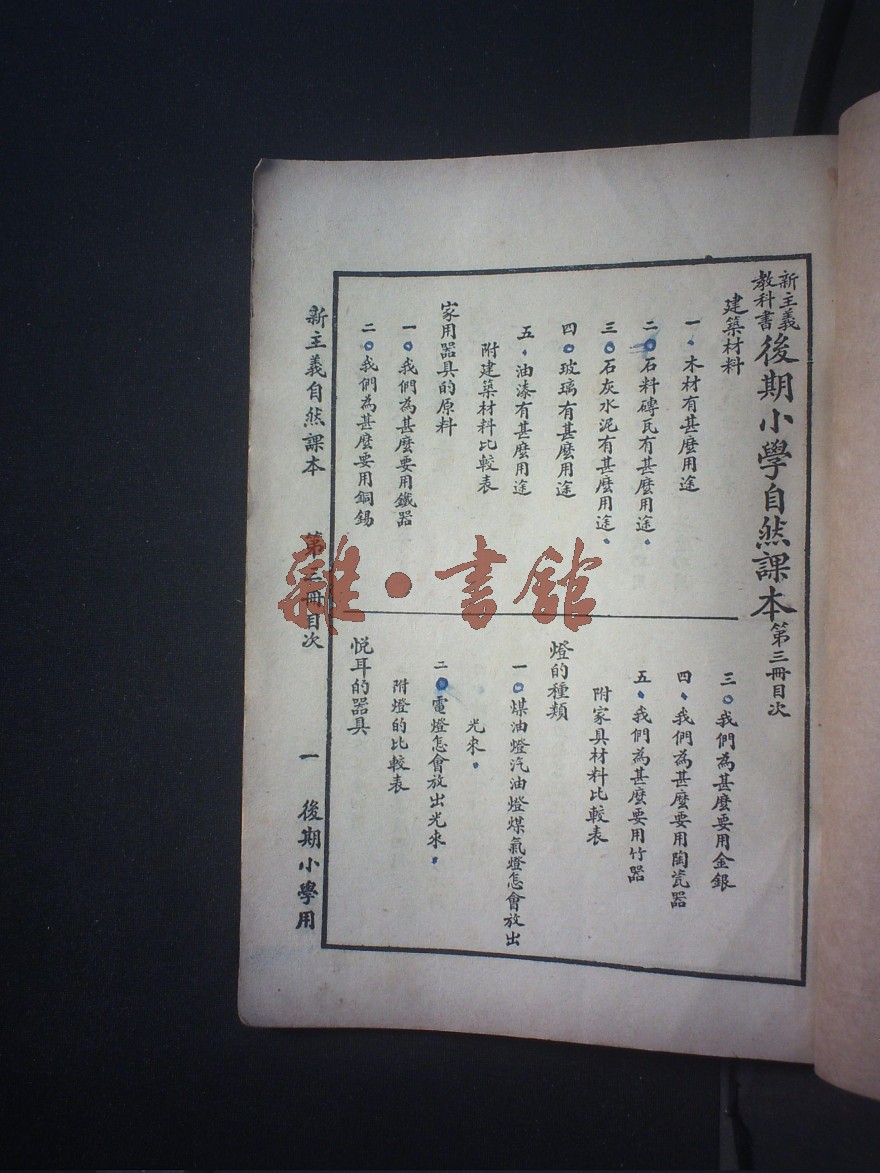 新主義教科書 後期小學自然課本 第三冊目次
建築材料
一、木材有甚麼用途
二、石料磚瓦有甚麼用途
三、石灰水泥有甚麼用途
四、玻璃有甚麼用途
五、油漆有甚麼用途
附建築材料比較表
家用器具的原料
一、我們為甚麼要用鐵器
二、我們為甚麼要用銅錫
三、我們為甚麼要用金銀
四、我們為甚麼要用陶瓷器
五、我們為甚麼要用竹器
附家具材料比較表
燈的種類
一、煤油燈汽油燈煤氣燈怎會放出
光來
二、電燈怎會放出光來
附燈的比較表
悅耳的器具
新主義自然課本 第三冊目次 一 後期小學用
雜·書館